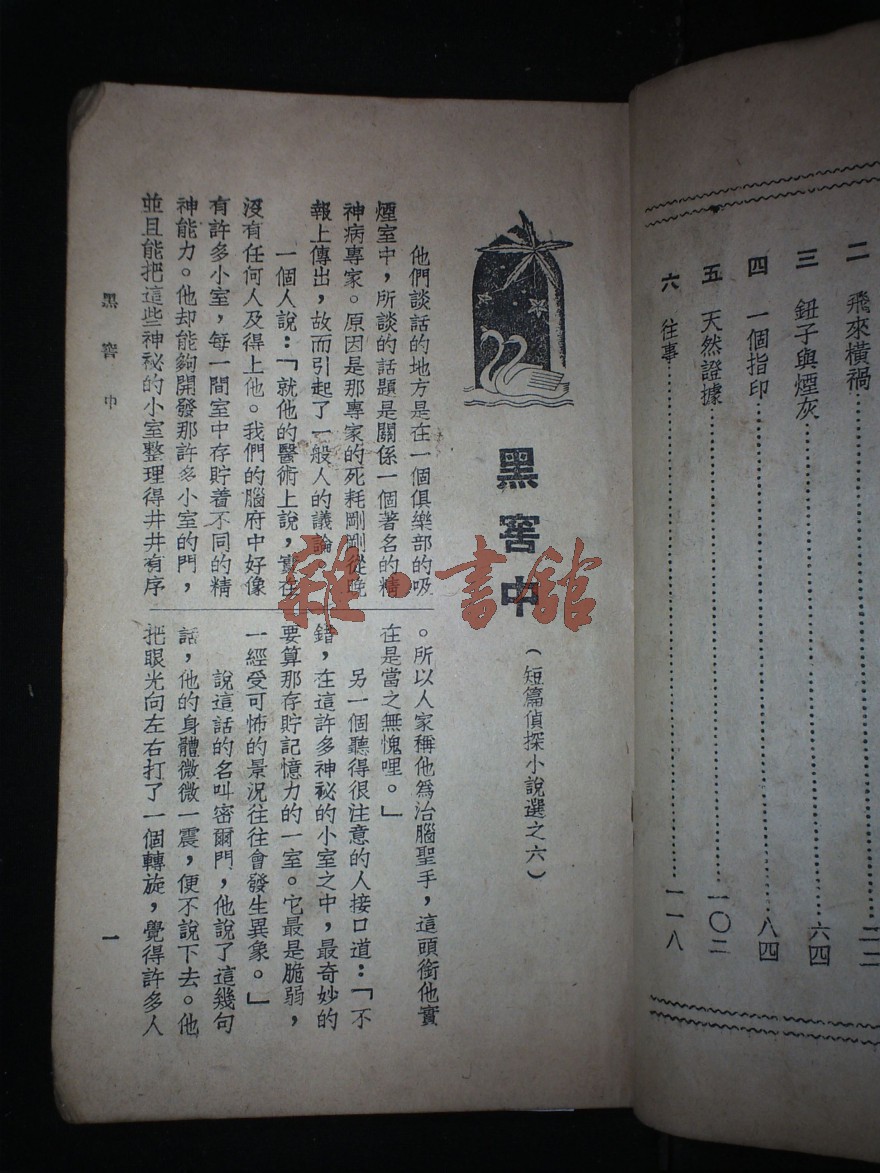 二 飛來橫禍
三 鈕子與煙灰……六四
四 一個指印……八四
五 天然證據……一〇二
六 往事……一一八
黑窖中
(短篇偵探小說選之六)
他們談話的地方是在一個俱樂部的吸
煙室中,所談的話題是關係一個著名的精
神病專家。原因是那專家的死耗剛剛從晚
報上傳出,故而引起了一般人的議論。
一個人說:「就他的醫術上說,實在
沒有任何人及得上他。我們的腦府中好像
有許多小室,每一間室中存貯着不同的精
神能力。他却能夠開發那許多小室的門,
並且能把這些神祕的小室整理得井井有序
。所以人家稱他爲治腦聖手,這頭銜他實
在是當之無愧哩。」
另一個聽得很注意的人接口道:「不
錯,在這許多神祕的小室之中,最奇妙的
要算那存貯記憶力的一室。它最是脆弱,
一經受可怖的景況往往會發生異象。」
說這話的名叫密爾門,他說了這幾句
話,他的身體微微一震,便不說下去。他
把眼光向左右打了一個轉旋,覺得許多人
黑窖中
一
雜·書舘